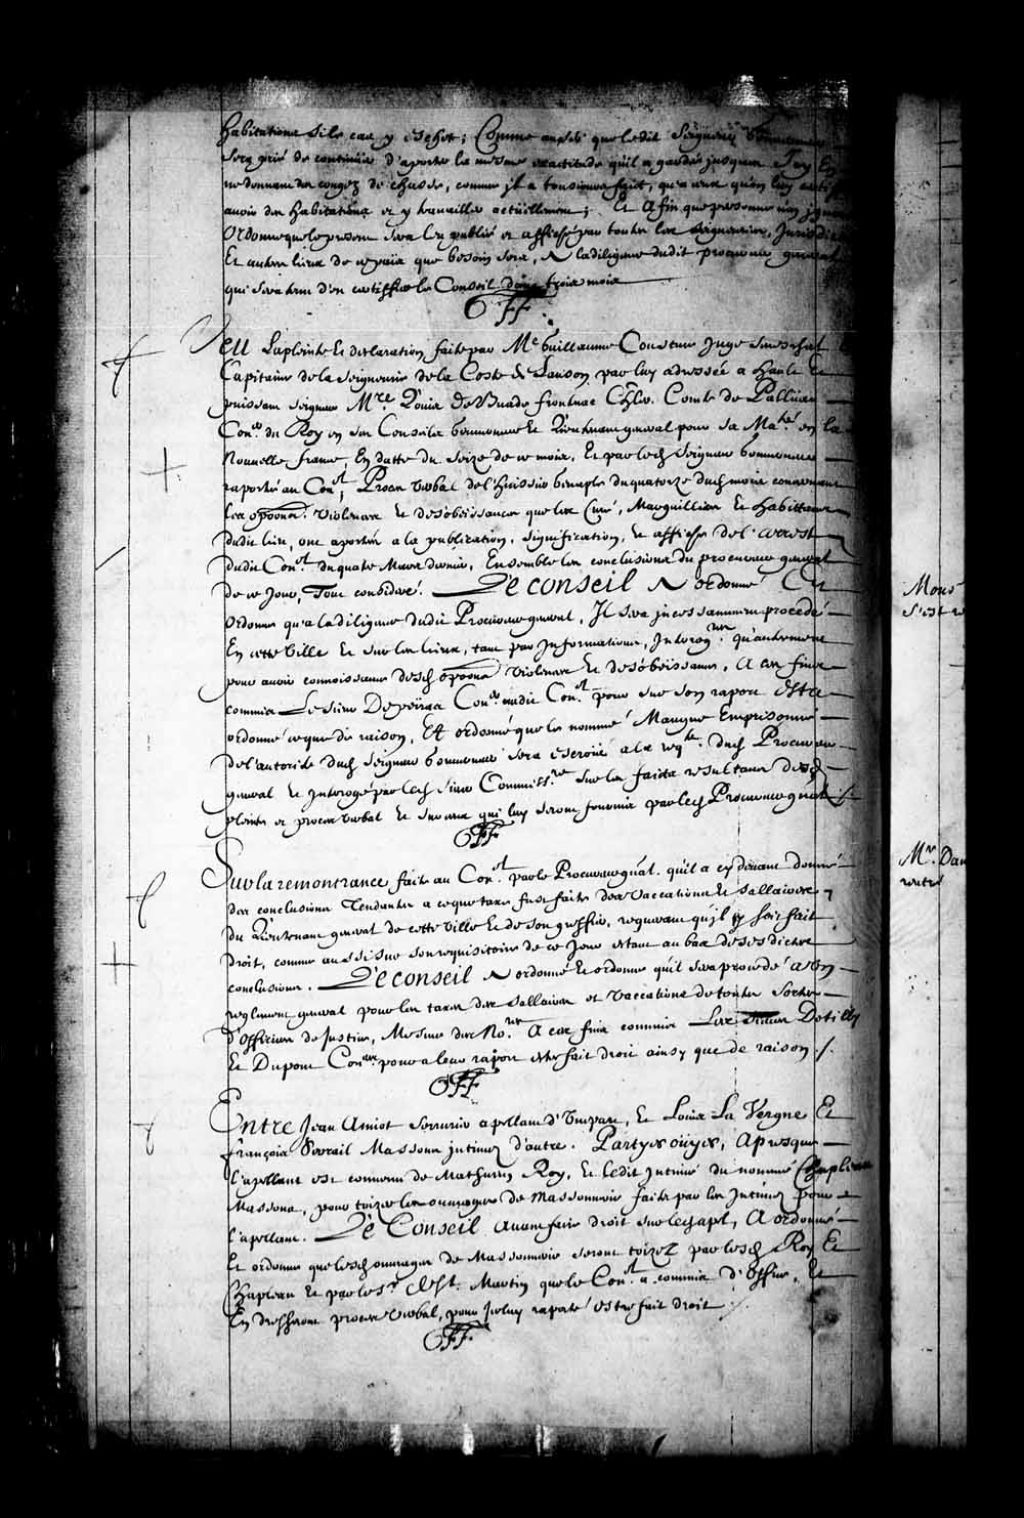 habitations si le cas y eschet; Comme aussi que ledit Seigneur Gouverneur
sera prié de continuer d'aporter la mesme exactitude qu'il a gardée jusques Icy En
ne donnant des congez de chasse, comme il a tousiours fait, qu'a ceux qu'on luy certif
avoir des habitations et y travailler actüellement; Et Afin que personne n'en ignore
Ordonne que le present sera leu publié et affiché par toutes les Seigneuries, Jurisdic
Et autres lieux de ce païs que besoin sera, A la diligence dudit procureur general
qui sera tenu d'en certiffier le Conseil dans trois mois
Veu La plainte Et declaration faite par Me Guillaume Couture Juge Seneschal Et
Capitaine de la Seigneurie de la Coste de Lauson par luy adressée a haut Et
puissant seigneur Mre Loüis De Buade frontnac Chlr. Comte de Palluau
Coner du Roy en ses Conseils Gouverneur Et Lieutenant general pour sa Maté en la
Nouvelle france, En datte du seize de ce mois, Et par led Seigneur Gouverneur
raporté au Conl, Procez Verbal de l'huissier Genaple du quatorze dud mois contenant
les oppoõns. Violences Et desobeissances que les Curé, Marguilliers Et habittans
dudit lieu, ont aportés a la publication, signification, et affiche de l'arrest
dudit Conl. du quatre Mars dernier, Ensemble les conclusions du procureur general
de ce Jour, Tout consideré. Le Conseil A ordonné Et
Ordonne qu'a la diligence dudit Procureur general, Il sera incessamment procedé
En cette Ville Et sur les lieux, tant par Informations, Interogres qu'autrement
pour avoir connoissance desd oppoõns Violences Et desobeissances, A ces fins
commis Le Sieur Depeiras Coner audit Conl pour sur son raport Estre
ordonné ce que de raison, Et ordonné que le nommé Mauque Emprisonné
de l'autorité dud Seigneur Gouverneur sera escroüé a la reqte dud Procureur
general Et Interogé par led Sieur Commissre sur les faits resultans desd
plaintes et procez Verbal Et sur ceux qui luy seront fournis par led Procureur gñal ./.
Sur la remontrance faite au Conl. par le Procureur gñal. qu'il a cy devant donné
des conclusions Tendantes a ce que taxe fust faite des Vaccations Et sallaires
du Lieutenant general de cette Ville Et de son greffier, requerant qu'il y soit fait
droit, comme aussi sur son requisitoire de ce Jour estant au bas de sesdictes
conclusions. Le Conseil A ordonné Et ordonne qu'il sera procedé a Un
reglement general pour les taxes des sallaires et Vaccations de toutes sortes
d'Officiers de Justice, Mesme des Nores A ces fins commis Les Sieurs Detilly
Et Dupont Coners pour a leur raport estre fait droit ainsy que de raison ./.
Entre Jean Amiot Serrurier apellant d'Unepart, Et Loüis La Vergne Et
françois Massons intimez d'autre. Partyes oüyes, Apres que
l'apellant est convenu de Mathurin Roy, Et ledit Intimé du nommé Chapleau
Massons, pour toizer les ouvrages de Massonnerie faits par les Intimez pour
l'apellant. Le Conseil avant faire droit sur led apl, A ordonné
Et ordonne que lesd ouvrages de Massonnerie seront toizez par lesd Roy Et
Chapleau Et par le Sr de St. Martin que le Conl. a commis d'Office, Et
En dresseront procez Verbal, pour iceluy raporté estre fait droit ./.
Mons
s'est re
Mr. Dam
rentré